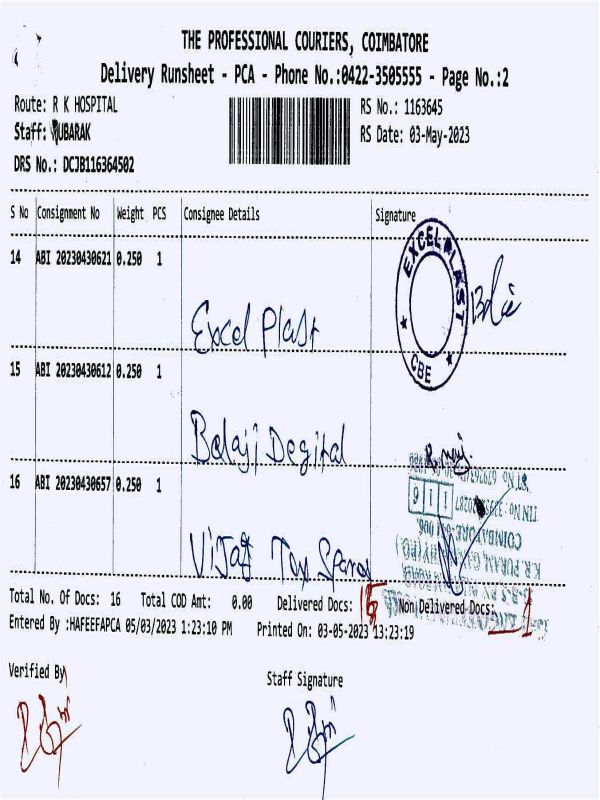 THE PROFESSIONAL COURIERS, COIMBATORE
Delivery Runsheet - PCA - Phone No.:0422-3505555 - Page No.:2
Route: R K HOSPITAL RS No.: 1163645
Staff: UBARAK RS Date: 03-May-2023
DRS No.: DCJB116364502
S No Consignment No Weight PCS Consignee Details Signature
14 ABI 20230430621 0.250 1
EXCEL PLAST
CBE
Excel Plast
15 ABI 20230430612 0.250 1
Balaji Degital
16 ABI 20230430657 0.250 1
116
COIMBATORE
K.R. PURAM
Vijay Tex
Total No. Of Docs: 16 Total COD Amt: 0.00 Delivered Docs: 15 Non Delivered Docs: 1
Entered By :HAFEEFAPCA 05/03/2023 1:23:10 PM Printed On: 03-05-2023 13:23:19
Verified By Staff Signature